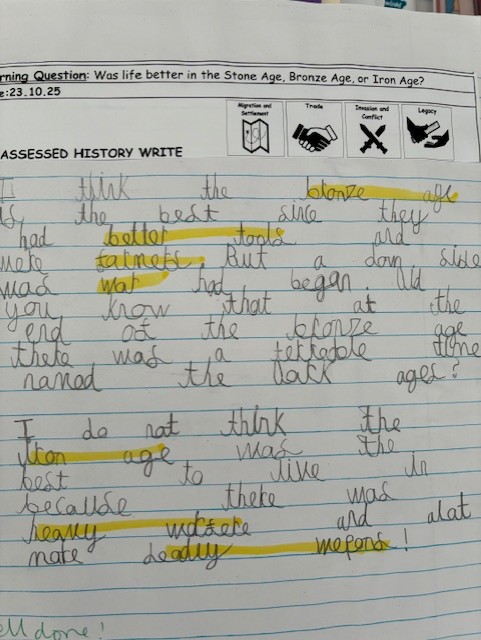 rning Question: Was life better in the Stone Age, Bronze Age, or Iron Age?
e:23.10.25
Migration and Settlement
Trade
Invasion and Conflict
Legacy
ASSESSED HISTORY WRITE
I think the bronze age
is the best since they
had better tools and
were farmers. But a down side
was war had began. Did
you know that at the
end of the bronze age
there was a terrable time
named the Dark ages?
I do not think the
iron age was the
best to live in
becaulse there was
heavy and alat
more deadly wepons!
ell done!